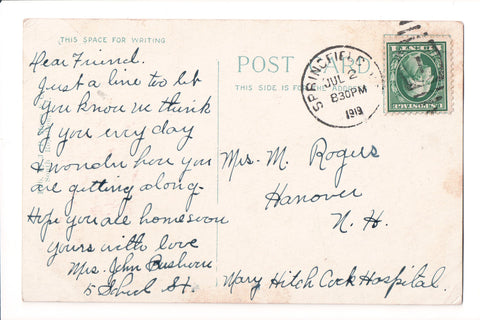 THIS SPACE FOR WRITING
Dear Friend.
Just a line to let
you know we think
of you every day
& wonder how you
are getting along-
Hope you are home soon
yours with love
Mrs. John
5 School St.
POST CARD
THIS SIDE IS FOR THE
SPRINGFIELD
JUL 2
830PM
1919
Mrs. M. Rogers
Hanover
N. H.
Mary Hitch Cock Hospital.